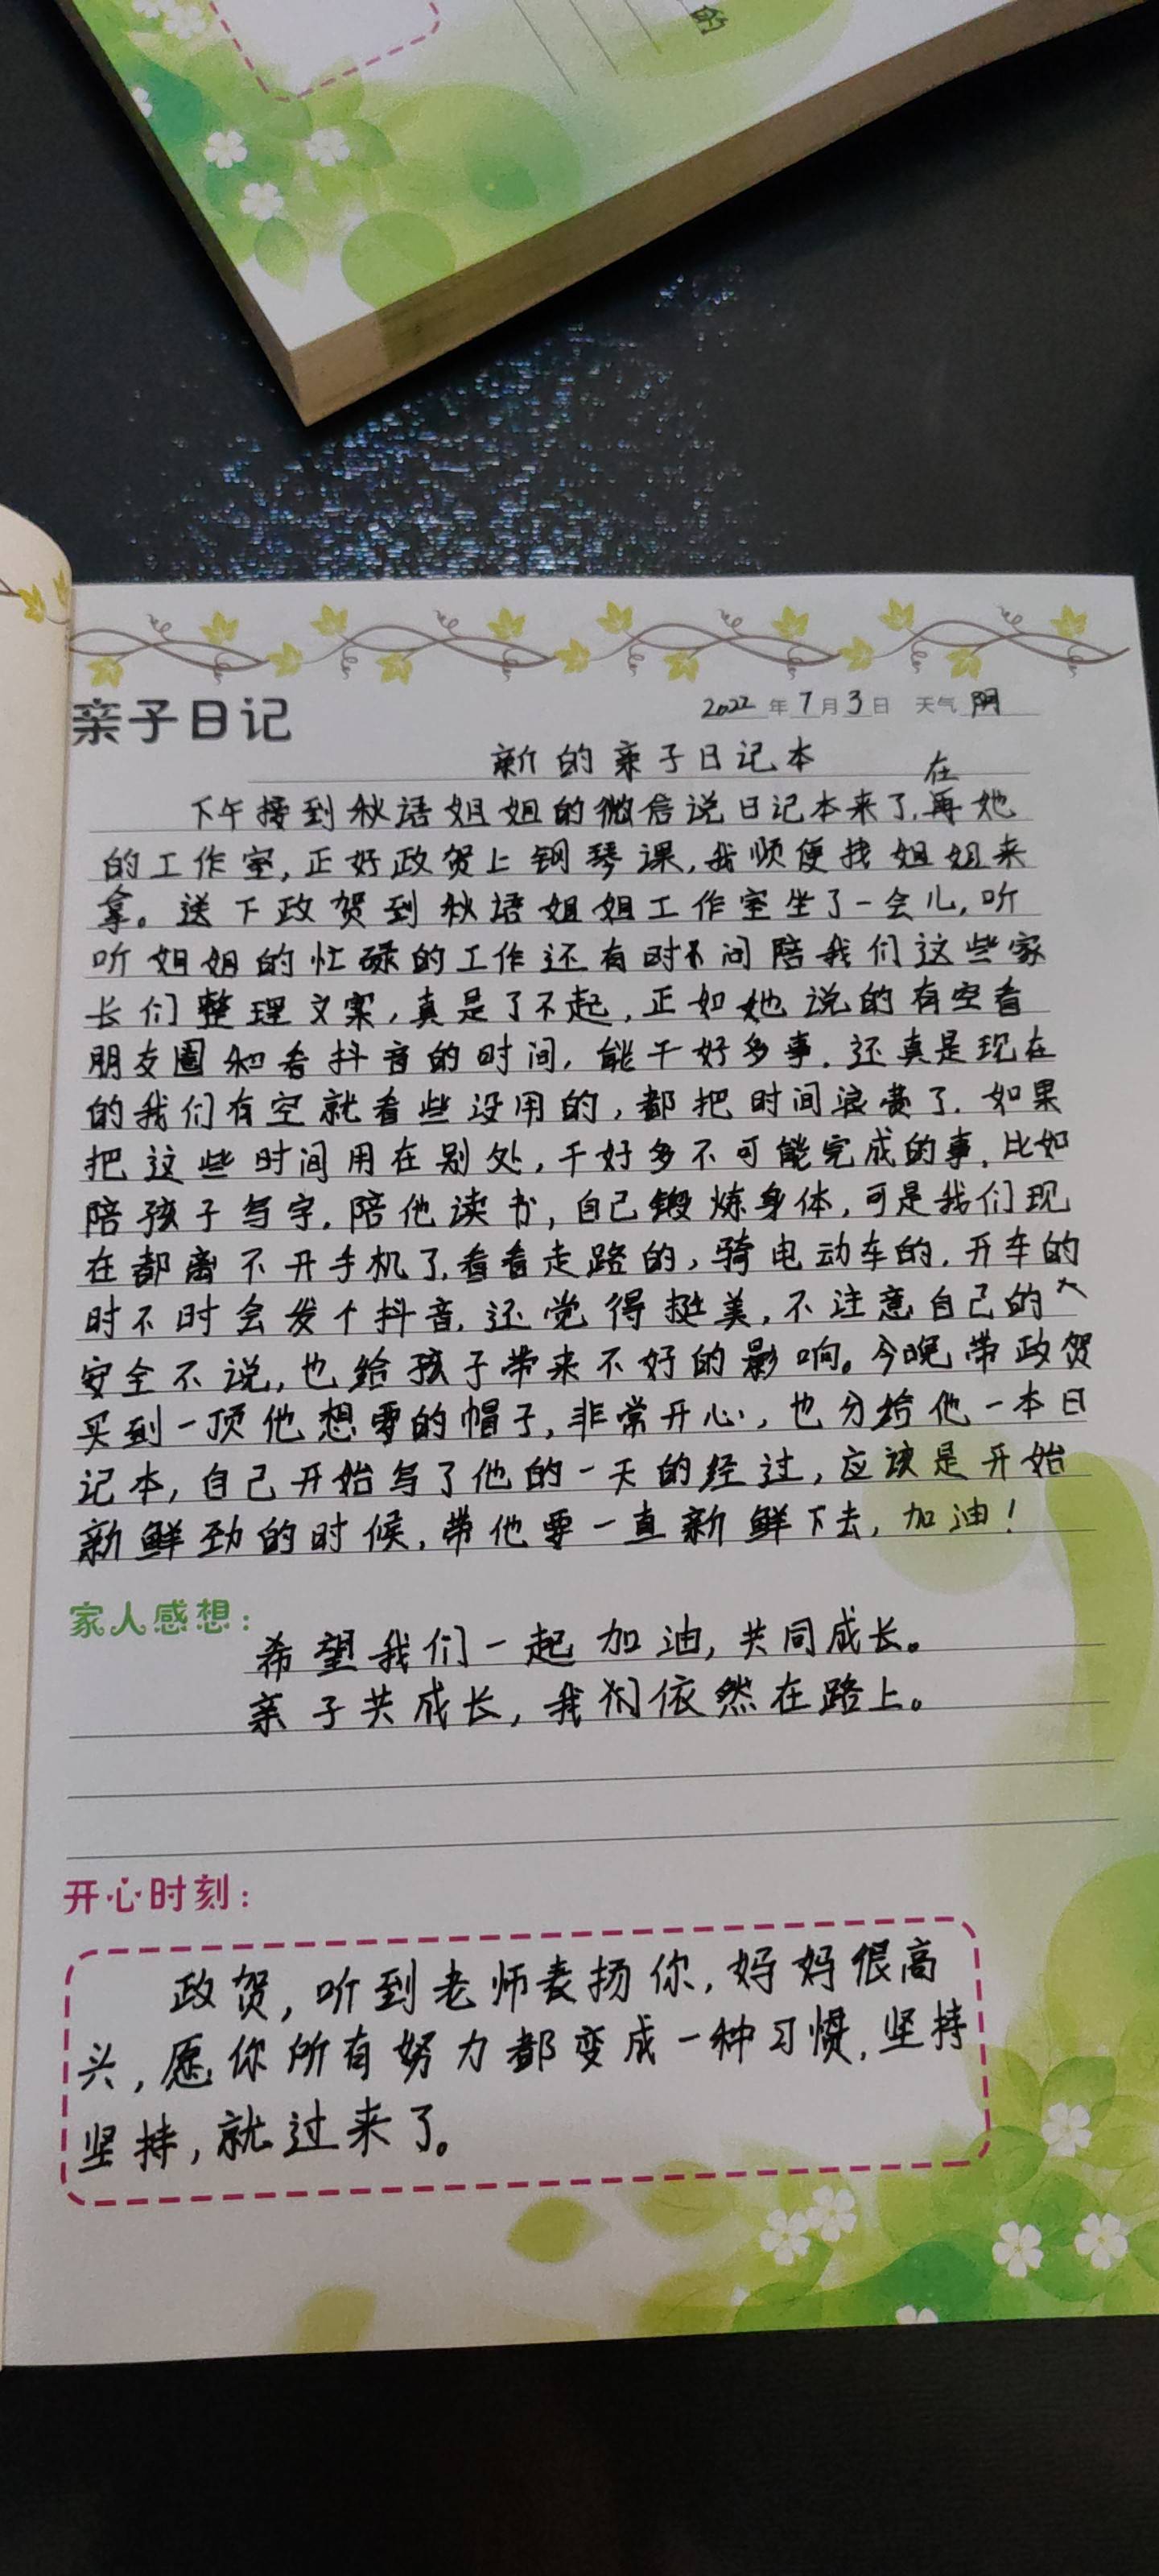 的
亲子日记
2022年7月3日 天气 阴
新的亲子日记本
在
下午接到秋语姐姐的微信说日记本来了,再她
的工作室,正好政贺上钢琴课,我顺便找姐姐来
拿。送下政贺到秋语姐姐工作室坐了一会儿,听
听姐姐的忙碌的工作还有时不间陪我们这些家
长们整理文案,真是了不起,正如她说的有空看
朋友圈和看抖音的时间,能干好多事.还真是现在
的我们有空就看些没用的,都把时间浪费了.如果
把这些时间用在别处,干好多不可能完成的事.比如
陪孩子写字.陪他读书,自己锻炼身体,可是我们现
在都离不开手机了.看看走路的,骑电动车的.开车的
时不时会发个抖音.还觉得挺美,不注意自己的
安全不说,也给孩子带来不好的影响。今晚带政贺
买到一顶他想要的帽子,非常开心,也分给他一本日
记本,自己开始写了他的一天的经过,应该是开始
新鲜劲的时候,带他要一直新鲜下去,加油!
家人感想:
希望我们一起加油,共同成长。
亲子共成长,我们依然在路上。
开心时刻:
政贺,听到老师表扬你,妈妈很高
兴,愿你所有努力都变成一种习惯,坚持
坚持,就过来了。